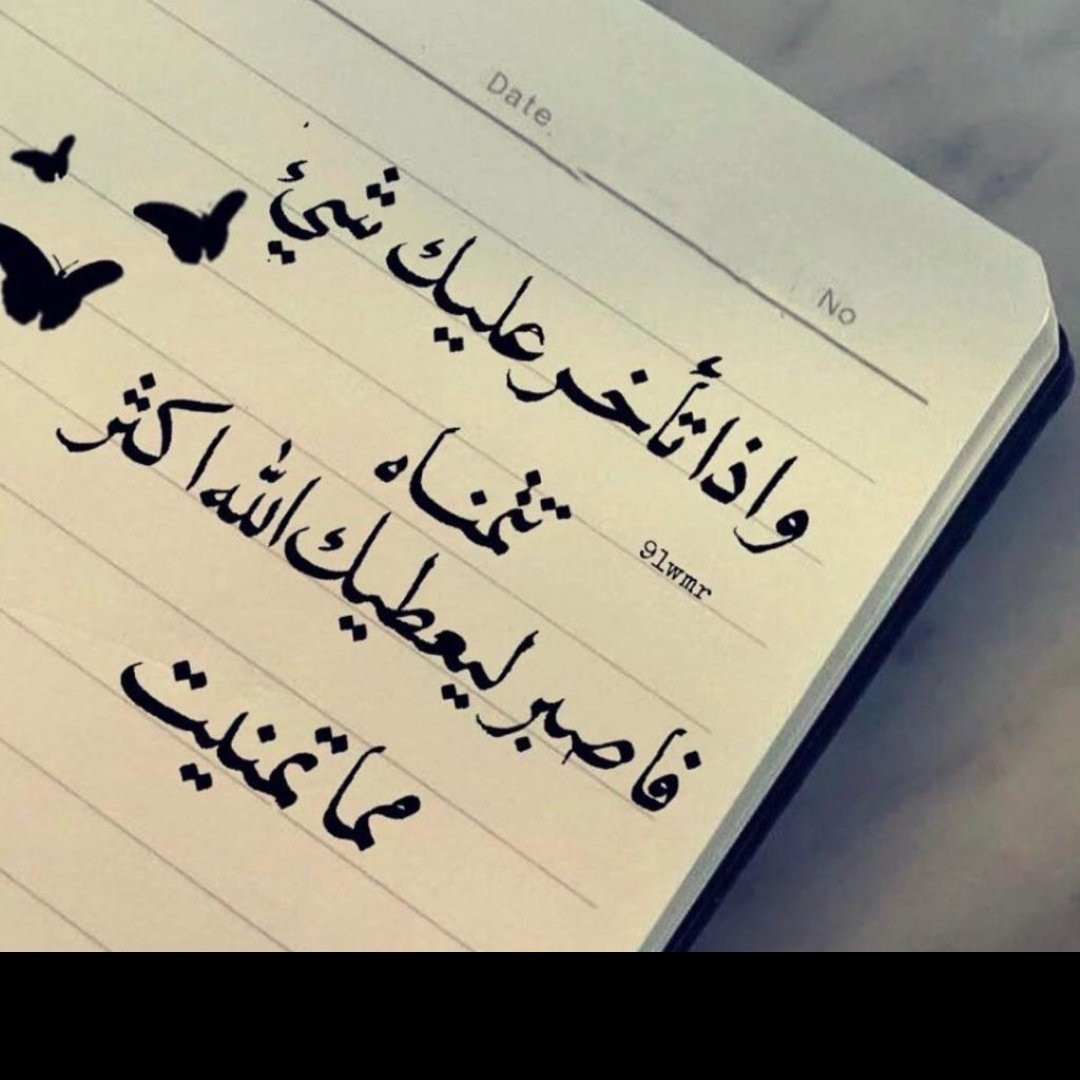 Date.
No
واذا تأخر عليك شيئ
تتمناه
9lwmr
فاصبر ليعطيك الله اكثر
مما تمنيت